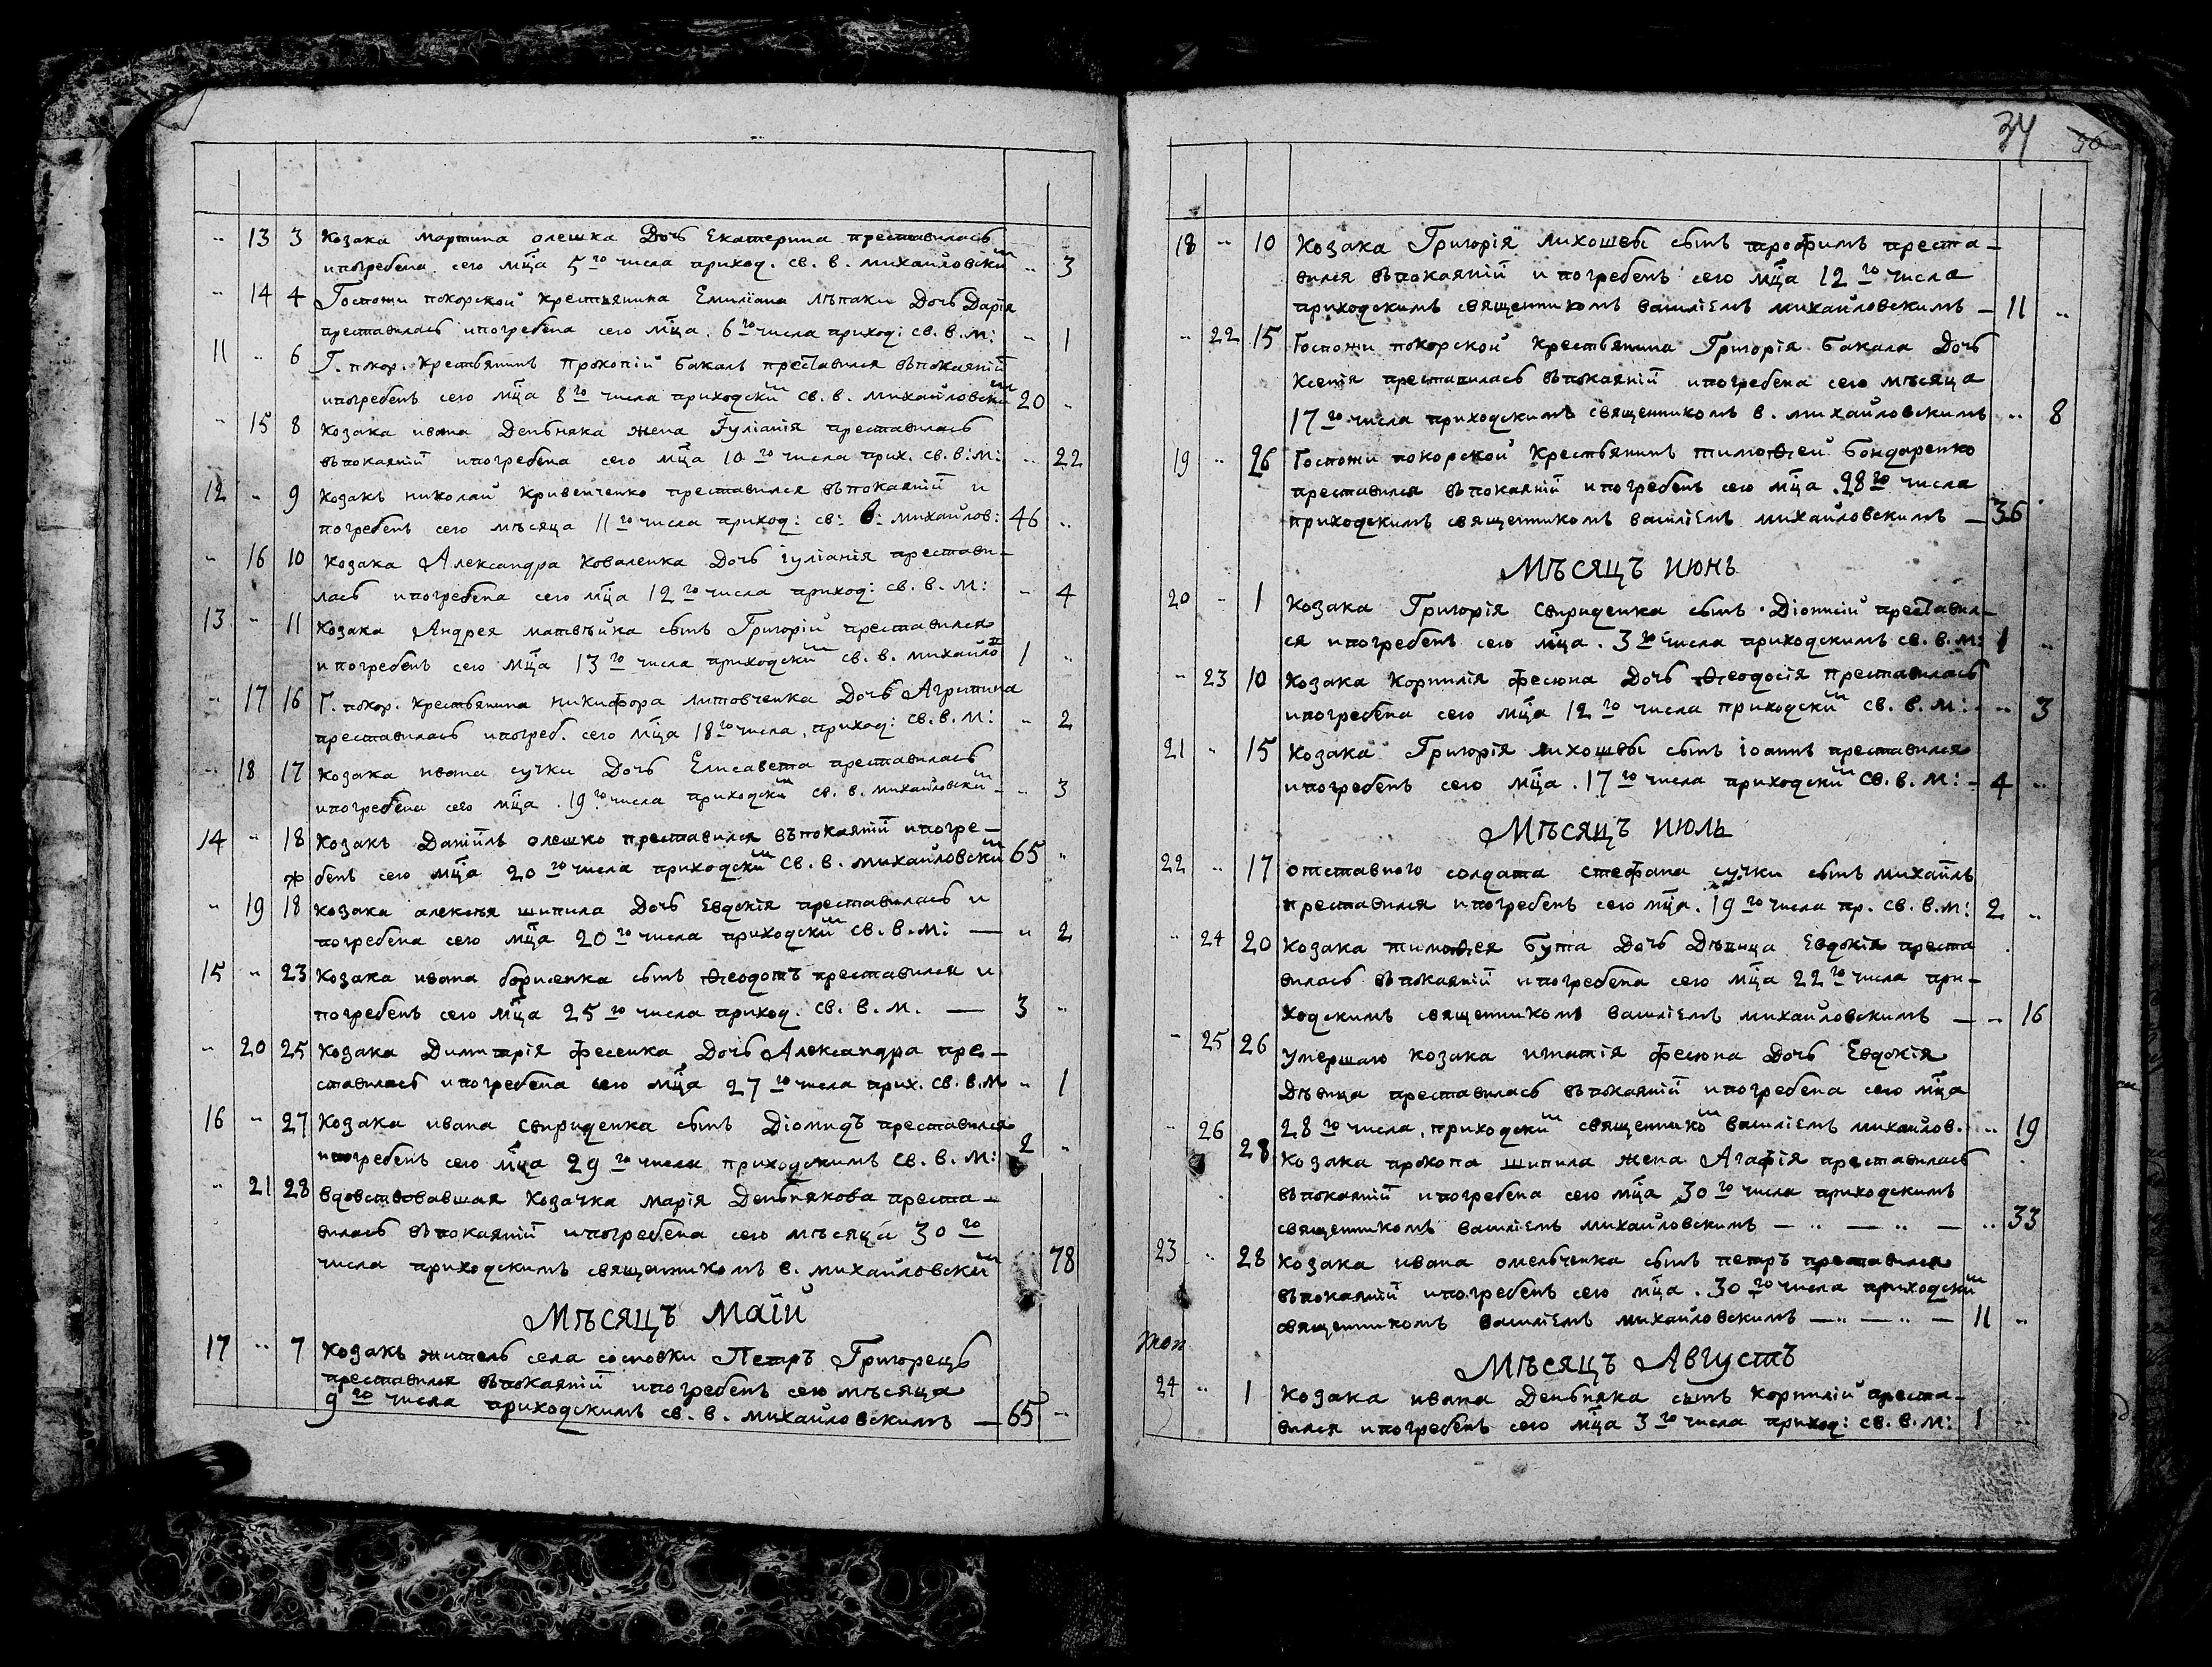 .. 13 3 Козака мартина олешка Дочь Екатерина преставилась
ипогребена сего мца 5го числа приход. св. в. михайловским .. 3
.. 14 4 Госпожи покорской крестьянина Емилїана лѣпаки Дочь Дарїя
преставилась ипогребена сего мца. 6го числа приход: св. в. м: .. 1
11 .. 6 Г. покор. крестьянинъ Прокопїй бакалъ преставился въпокаянїи
ипогребенъ сего мца 8го числа приходским св. в. михайловским 20 ..
.. 15 8 Козака ивана Деньбняка жена Їулїанїя преставилась
въпокаянїи ипогребена сего мца 10го числа прих. св. в: м: .. 22
12 .. 9 Козакъ николай кривенченко преставился въпокаянїи и
погребенъ сего мѣсяца 11го числа приход: св: в: михайлов: 46 ..
.. 16 10 Козака Александра Коваленка Дочь їулїанїя престави-
лась ипогребена сего мца 12го числа приход: св. в. м: .. 4
13 .. 11 Козака Андрея матвѣйка сынъ Григорїй преставился
ипогребенъ сего мца 13го числа приходским св. в. михайло 1 ..
.. 17 16 Г. покор. крестьянина никифора литовченка Дочь Агрипина
преставилась ипогреб. сего мца 18го числа, приход: св. в. м: .. 2
.. 18 17 Козака ивана сучки Дочь Елисавета преставилась
ипогребена сего мца. 19го числа приходским св. в. михайловским .. 3
14 .. 18 Козакъ Данїилъ олешко преставился въпокаянїи ипогре-
бенъ сего мца 20го числа приходским св. в. михайловским 65 ..
.. 19 18 козака алексѣя шипила Дочь Евдокїя преставилась и
погребена сего мца 20го числа приходским св. в. м: — .. 2
15 .. 23 Козака ивана борисенка сынъ Ѳеодотъ преставился и
погребенъ сего мца 25го числа приход. св. в. м. — 3 ..
.. 20 25 Козака Димитрїя фесенка Дочь Александра пре-
ставилась ипогребена сего мца 27го числа прих. св. в. м .. 1
16 .. 27 Козака ивана свириденка сынъ Дїомидъ преставился
ипогребенъ сего мца 29го числа приходскимъ св. в. м: 2 ..
.. 21 28 вдовствовавшая Козачка марїя Деньбнякова преста-
вилась въпокаянїи ипогребена сего мѣсяца 30го
числа приходскимъ священникомъ в. михайловским 78
Мѣсяцъ Маїй
17 .. 7 Козакъ житель села сосновки Петръ Григорецъ
преставился въпокаянїи ипогребенъ сего мѣсяца
9го числа приходскимъ св. в. михайловскимъ — 65 ..
34
18 .. 10 Козака Григорїя лихошвы сынъ трофимъ преста-
вился въпокаянїи ипогребенъ сего мца 12го числа
приходскимъ священникомъ василїемъ михайловскимъ — 11 ..
.. 22 15 Госпожи покорской крестьянина Григорїя бакала Дочь
Ксенїя преставилась въпокаянїи ипогребена сего мѣсяца
17го числа приходскимъ священникомъ в. михайловскимъ .. 8
19 .. 26 Госпожи покорской крестьянинъ тимоѳей бондаренко
преставился въпокаянїи ипогребенъ сего мца. 28го числа
приходскимъ священникомъ василїемъ михайловскимъ — 36
Мѣсяцъ июнь
20 .. 1 Козака Григорїя свириденка сынъ Дїонисїй преставил-
ся ипогребенъ сего мца. 3го числа приходскимъ св. в. м: 1 ..
.. 23 10 Козака Корнилїя фесюна Дочь Ѳеодосїя преставилась
ипогребена сего мца 12го числа приходским св. в. м: .. 3
21 .. 15 Козака Григорїя лихошвы сынъ їоаннъ преставился
ипогребенъ сего мца. 17го числа приходским св. в. м: - 4 ..
Мѣсяцъ июль
22 .. 17 отставного солдата стефана сучки сынъ михаилъ
преставился ипогребенъ сего мца. 19го числа пр. св. в. м: 2 ..
.. 24 20 Козака тимоѳея бута Дочь Дѣвица Евдокїя преста
вилась въпокаянїи ипогребена сего мца 22го числа при-
ходскимъ священникомъ василїемъ михайловскимъ — .. 16
.. 25 26 умершаго козака игнатїя фесюна Дочь Евдокїя
Дѣвица преставилась въпокаянїи ипогребена сего мца
28го числа, приходским священнико василїемъ михайлов. .. 19
.. 26 28 Козака прокопа шипила жена Агафїя преставилась
въпокаянїи ипогребена сего мца 30го числа приходскимъ
священникомъ василїемъ михайловскимъ — .. — .. — .. 33
23 .. 28 Козака ивана омельченка сынъ петръ преставился
въпокаянїи ипогребенъ сего мца. 30го числа приходским
священникомъ василїемъ михайловскимъ — .. — .. — 11 ..
Мѣсяцъ Августъ
24 .. 1 Козака ивана Деньбняка сынъ Корнилїй преста-
вился ипогребенъ сего мца 3го числа приход: св. в. м: 1 ..